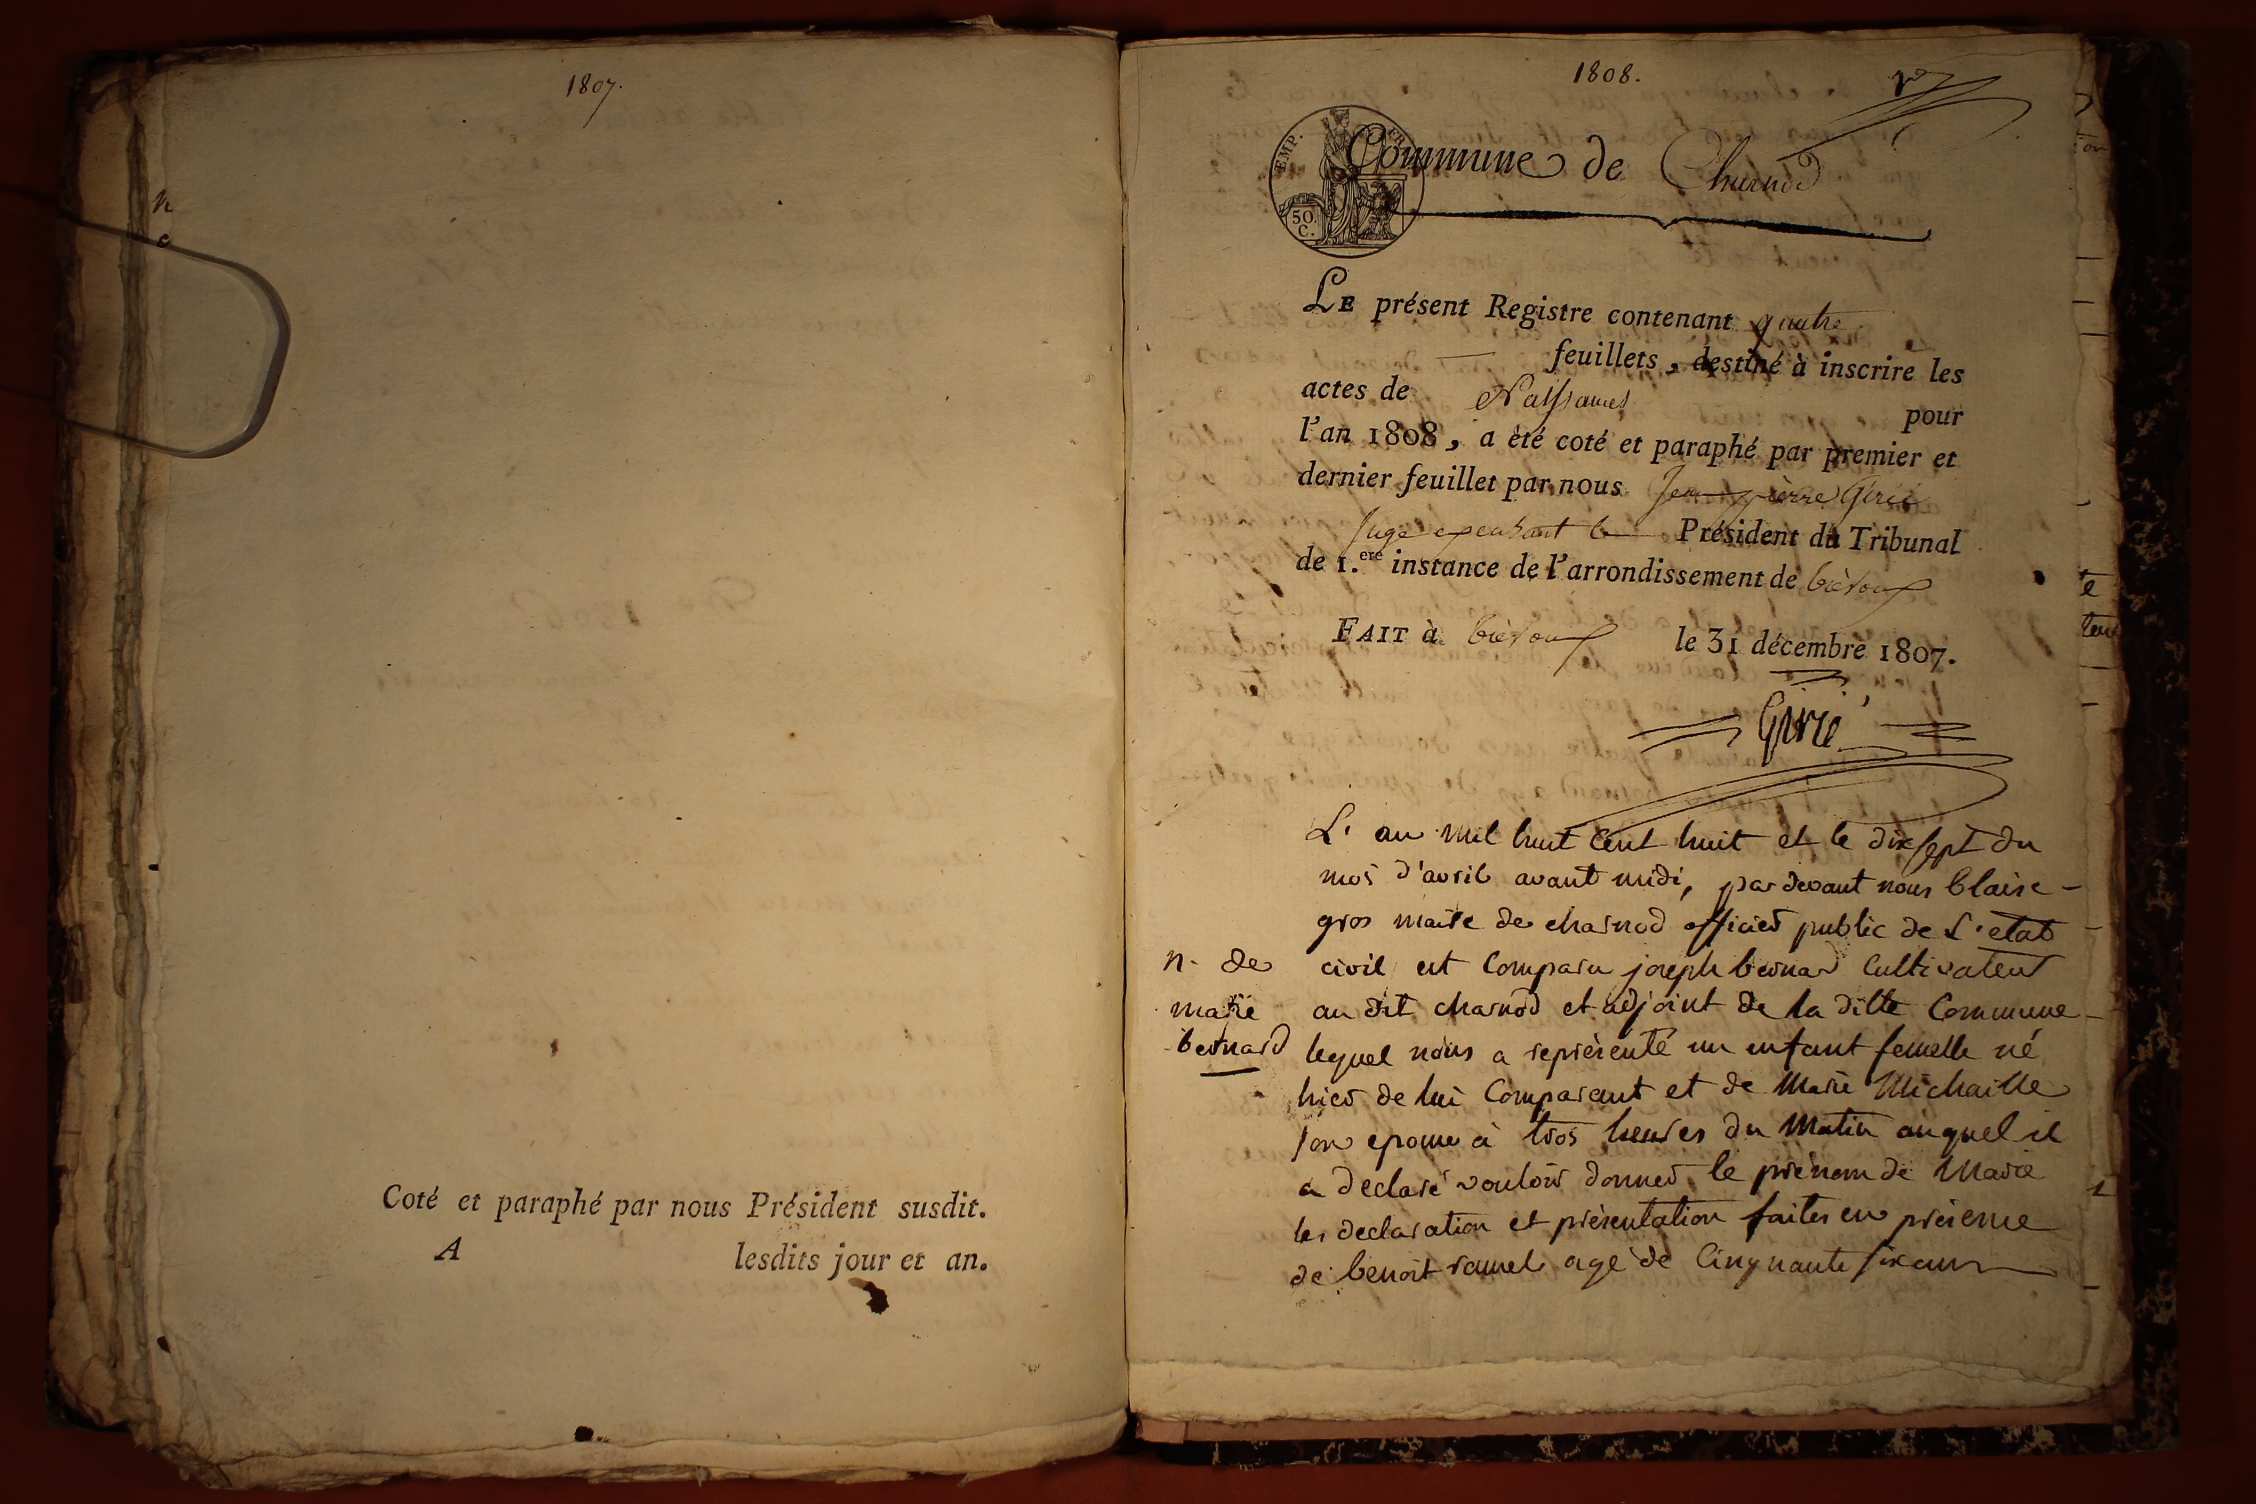 1807.
n
Coté et paraphé par nous Président susdit.
A lesdits jour et an.
1808.
Commune de Charnod
EMP. FR
50
C.
LE présent Registre contenant quatre
feuillets, destiné à inscrire les
actes de Naissances pour
l'an 1808, a été coté et paraphé par premier et
dernier feuillet par nous Jean pierre Girié
Juge Président du Tribunal
de 1.ere instance de l'arrondissement de
FAIT à le 31 décembre 1807.
Girié
L'an mil huit cent huit et le dix sept du
mois d'avril avant midi, par devant nous blaise
gros maire de charnod officier public de L'etat
civil est comparu joseph bernard cultivateur
au dit charnod et adjoint de la ditte Commune
lequel nous a représenté un enfant femelle né
hier de lui Comparant et de Marie Michaille
son epouse à trois heures du Matin auquel il
a declaré vouloir donner le prénom de Marie
les declaration et présentation faites en présence
de benoit ramel agé de Cinquante six ans
n. de
marie
bernard